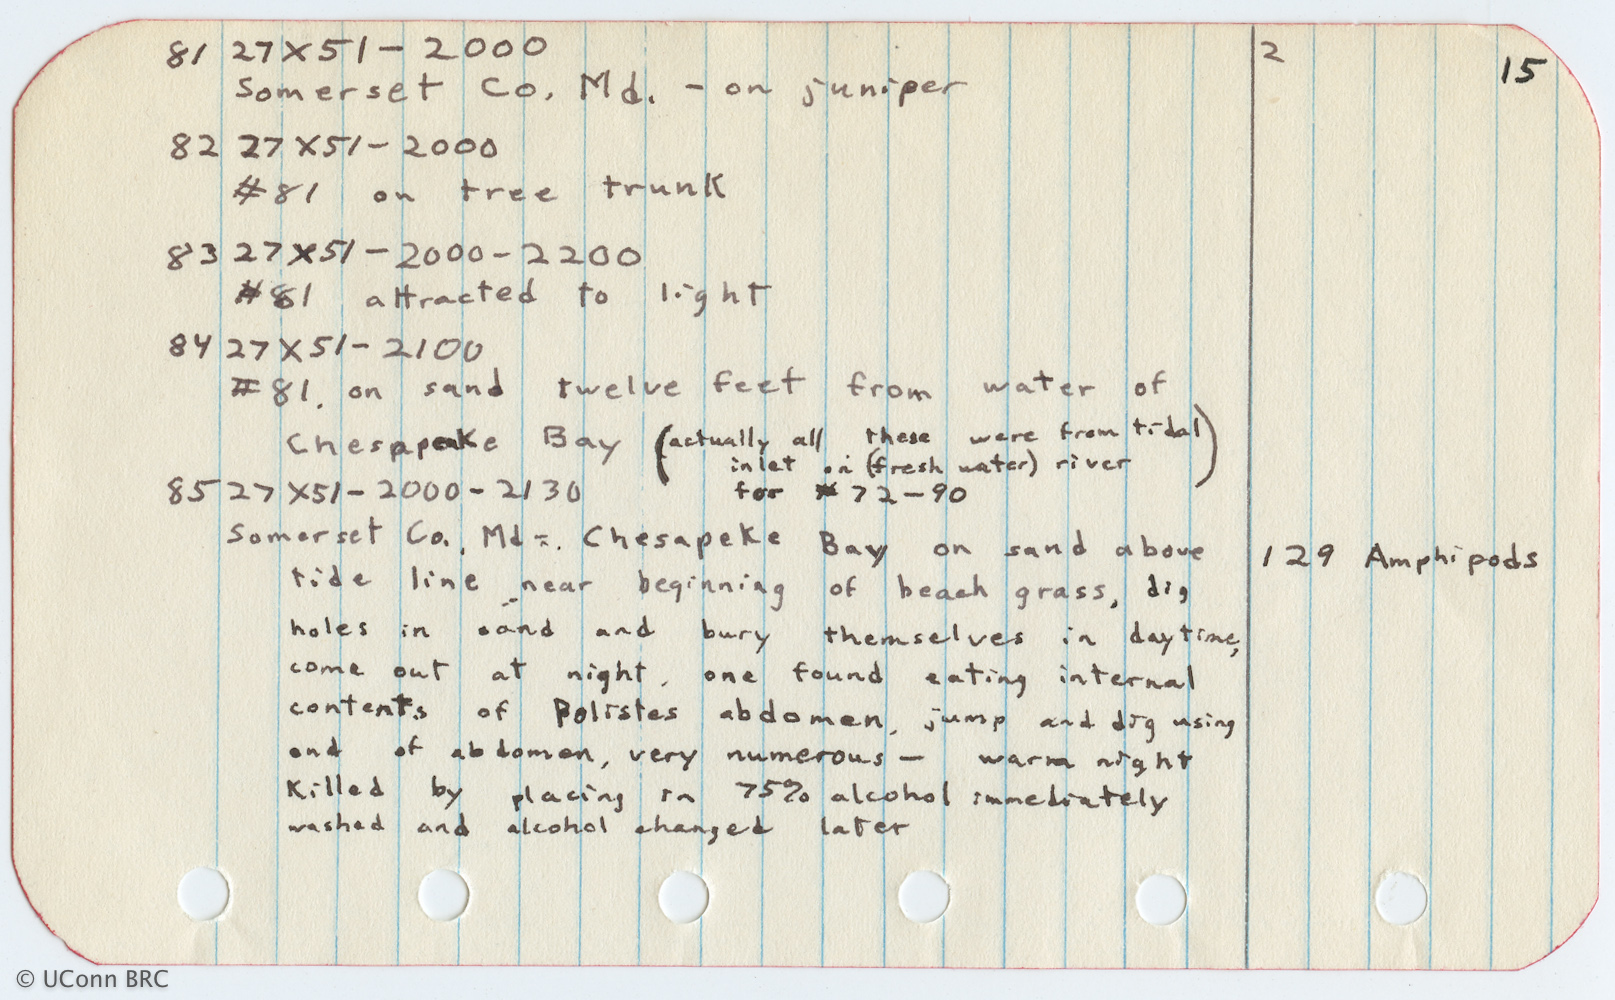 81 27X51-2000 2 15
Somerset Co. Md. - on juniper
82 27X51-2000
#81 on tree trunk
83 27X51-2000-2200
#81 attracted to light
84 27X51-2100
#81. on sand twelve feet from water of
Chesapeake Bay (actually all these were from tidal
inlet on (fresh water) river
for # 72-90)
85 27X51-2000-2130
Somerset Co., Md-. Chesapeke Bay on sand above 129 Amphipods
tide line near beginning of beach grass, dig
holes in sand and bury themselves in daytime,
come out at night, one found eating internal
contents of Polistes abdomen, jump and dig using
end of abdomen, very numerous - warm night
Killed by placing in 75% alcohol immediately
washed and alcohol changed later
© UConn BRC